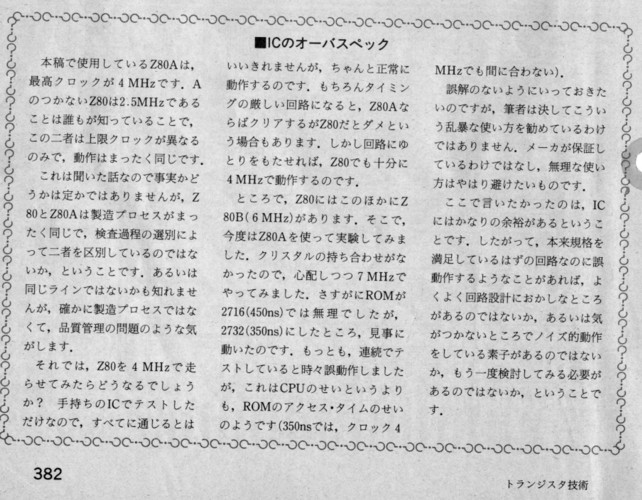 ■ICのオーバスペック
本稿で使用しているZ80Aは,
最高クロックが4MHzです.A
のつかないZ80は2.5MHzである
ことは誰もが知っていることで,
この二者は上限クロックが異なる
のみで,動作はまったく同じです.
これは聞いた話なので事実かど
うかは定かではありませんが,Z
80とZ80Aは製造プロセスがまっ
たく同じで,検査過程の選別によ
って二者を区別しているのではな
いか,ということです.あるいは
同じラインではないかも知れませ
んが,確かに製造プロセスではな
くて,品質管理の問題のような気
がします.
それでは,Z80を4MHzで走
らせてみたらどうなるでしょう
か? 手持ちのICでテストした
だけなので,すべてに通じるとは
いいきれませんが,ちゃんと正常に
動作するのです.もちろんタイミン
グの厳しい回路になると,Z80Aな
らばクリアするがZ80だとダメとい
う場合もあります.しかし回路にゆ
とりをもたせれば,Z80でも十分に
4MHzで動作するのです.
ところで,Z80にはこのほかにZ
80B(6MHz)があります.そこで,
今度はZ80Aを使って実験してみま
した.クリスタルの持ち合わせがな
かったので,心配しつつ7MHzで
やってみました.さすがにROMが
2716(450ns)では無理でしたが,
2732(350ns)にしたところ,見事に
動いたのです.もっとも,連続でテ
ストしていると時々誤動作しました
が,これはCPUのせいというより
も,ROMのアクセス・タイムのせい
のようです(350nsでは,クロック4
MHzでも間に合わない).
誤解のないようにいっておきた
いのですが,筆者は決してこうい
う乱暴な使い方を勧めているわけ
ではありません.メーカが保証し
ているわけではなし,無理な使い
方はやはり避けたいものです.
ここで言いたかったのは,IC
にはかなりの余裕があるというこ
とです.したがって,本来規格を
満足しているはずの回路なのに誤
動作するようなことがあれば,よ
くよく回路設計におかしなところ
があるのではないか,あるいは気
がつかないところでノイズ的動作
をしている素子があるのではない
か,もう一度検討してみる必要が
あるのではないか,ということで
す.
382
トランジスタ技術